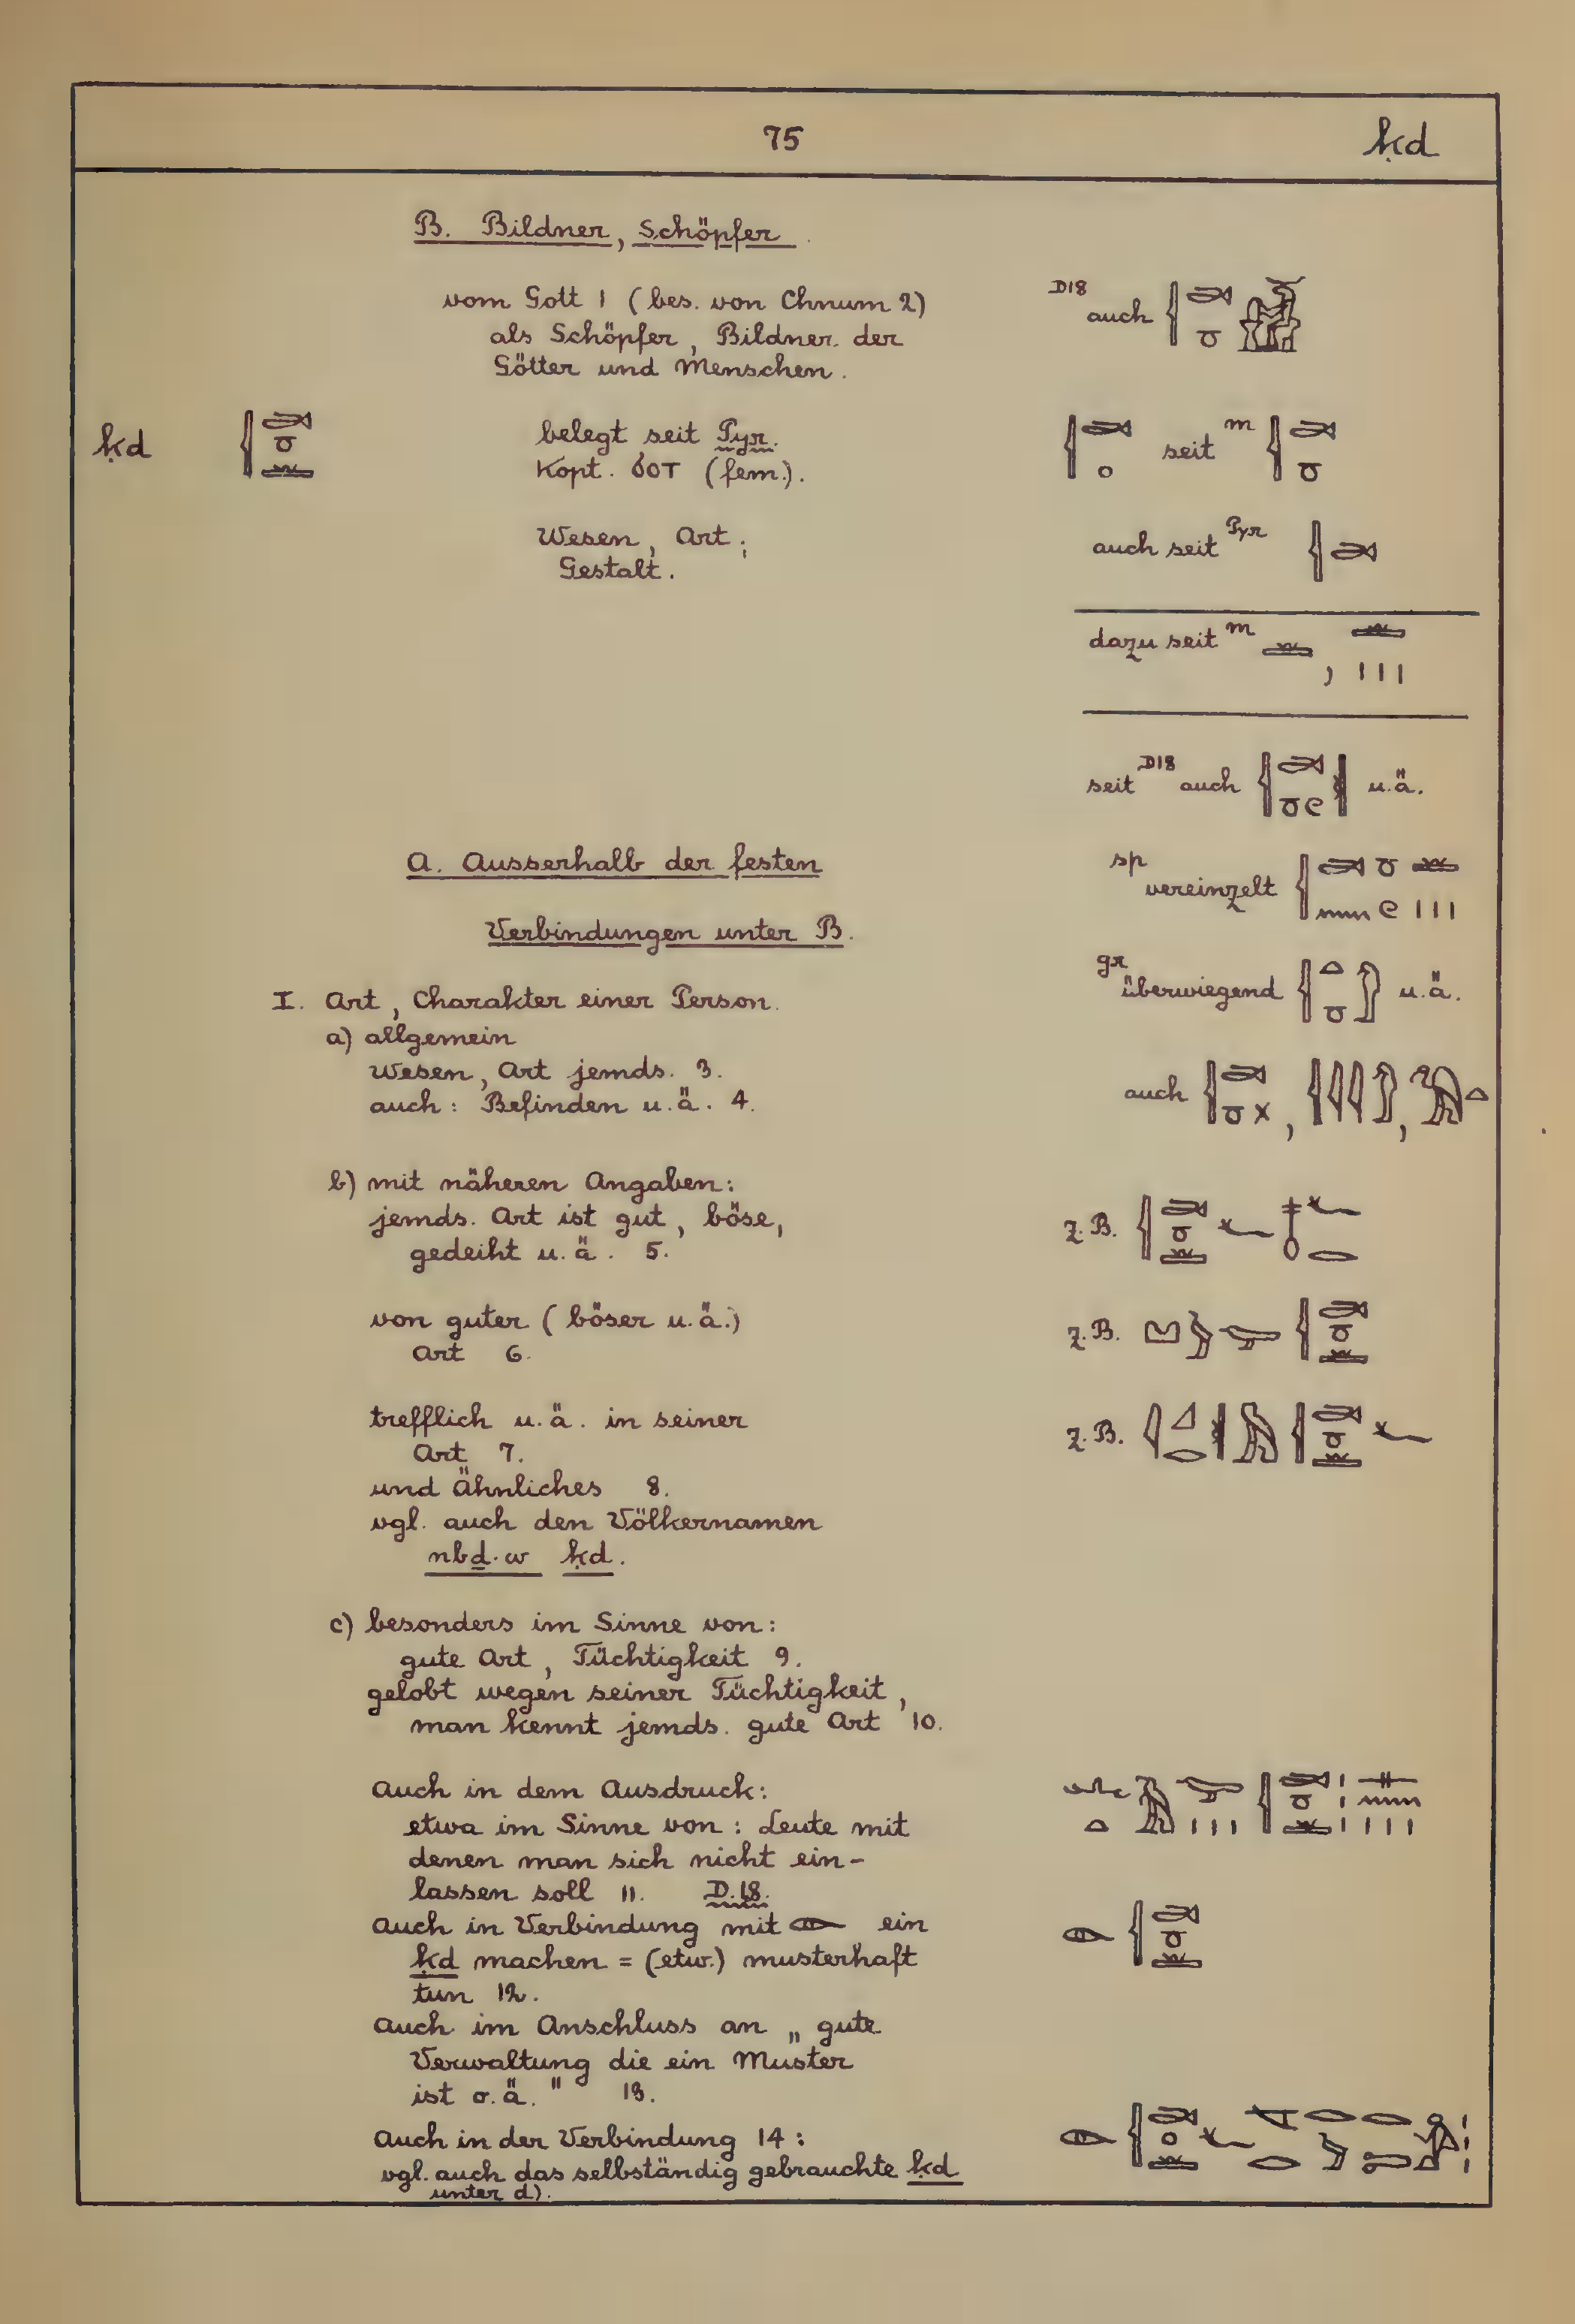 75
ḳd
B. Bildner, Schöpfer.
vom Gott 1 (bes. von Chnum 2)
als Schöpfer, Bildner der
Götter und Menschen.
D18 auch
ḳd
belegt seit Pyr.
Kopt. ϭοτ (fem.).
seit m
Wesen, Art;
Gestalt.
auch seit Pyr
dazu seit m ,
seit D18 auch u.ä.
A. Ausserhalb der festen
Verbindungen unter B.
sp vereinzelt
gr überwiegend u.ä.
I. Art, Charakter einer Person.
a) allgemein
Wesen, Art jemds. 3.
auch: Befinden u.ä. 4.
auch , ,
b) mit näheren Angaben:
jemds. Art ist gut, böse,
gedeiht u.ä. 5.
z.B.
von guter (böser u.ä.)
Art 6.
z.B.
trefflich u.ä. in seiner
Art 7.
z.B.
und Ähnliches 8.
vgl. auch den Völkernamen
nbḏ.w ḳd.
c) besonders im Sinne von:
gute Art, Tüchtigkeit 9.
gelobt wegen seiner Tüchtigkeit,
man kennt jemds. gute Art 10.
auch in dem Ausdruck:
etwa im Sinne von: Leute mit
denen man sich nicht ein-
lassen soll 11. D.18.
auch in Verbindung mit 𓁹 ein
ḳd machen = (etw.) musterhaft
tun 12.
auch im Anschluss an „gute
Verwaltung die ein Muster
ist o.ä." 13.
auch in der Verbindung 14:
vgl. auch das selbständig gebrauchte ḳd
unter d).